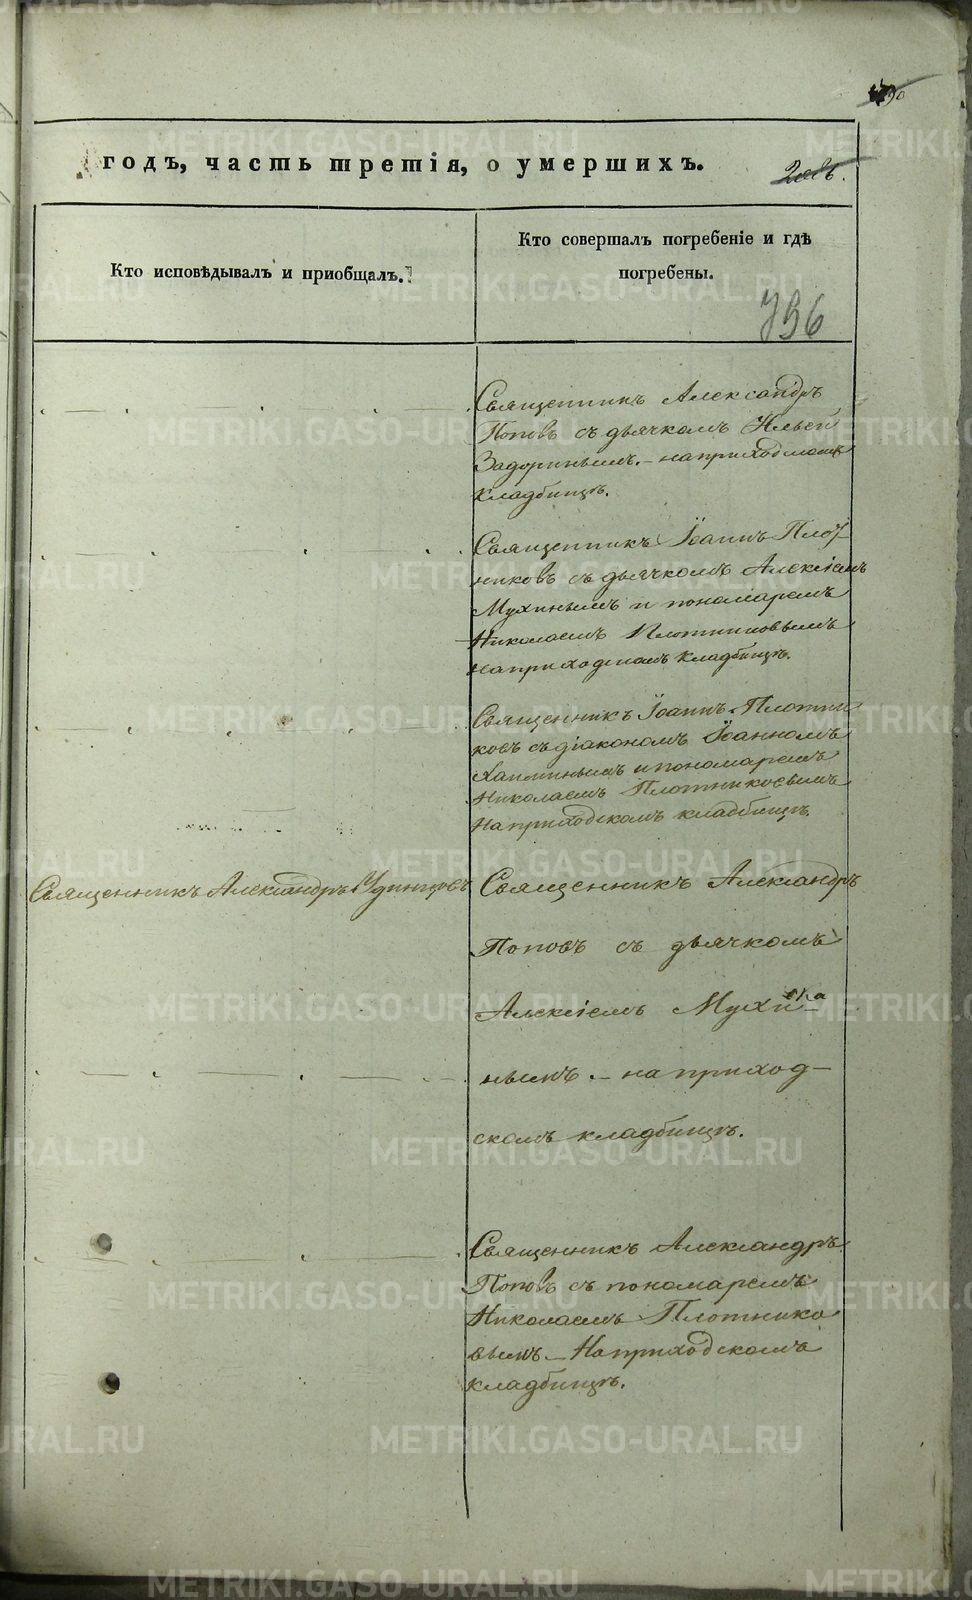 METRIKI.GASO-URAL.RU
годъ, часть третія, о умершихъ.
Кто исповѣдывалъ и пріобщалъ.
Кто совершалъ погребеніе и гдѣ
погребены.
796
Священникъ Александръ
Поповъ съ дьячкомъ Ильей
Задоринымъ. – на приходскомъ
кладбищѣ.
Священникъ Іоаннъ Плот-
никовъ съ дьячкомъ Алексіемъ
Мухинымъ и пономаремъ
Николаемъ Плотниковымъ
на приходскомъ кладбищѣ.
Священникъ Іоаннъ Плотни
ковъ съ діакономъ Іоанномъ
и пономаремъ
Николаемъ Плотниковымъ
На приходскомъ кладбищѣ.
Священникъ Александръ Удинцовъ
Священникъ Александръ
Поповъ съ дьячкомъ
Алексіемъ Мухи
нымъ. – на приход-
скомъ кладбищѣ.
Священникъ Александръ
Поповъ съ пономаремъ
Николаемъ Плотнико
вымъ – На приходскомъ
кладбищѣ.